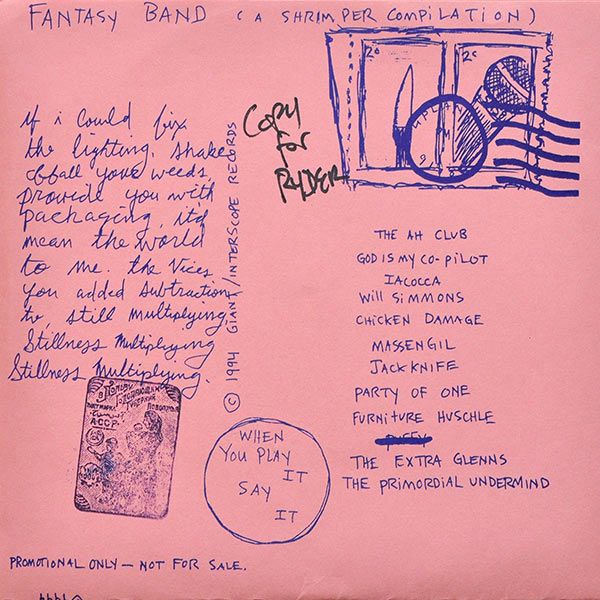 FANTASY BAND (A SHRIMPER COMPILATION)
if i could fix
the lighting, shake
off all your weeds,
provide you with
packaging, it'd
mean the world
to me. the vices
you added subtraction
to, still multiplying,
Stillness multiplying
Stillness multiplying.
© 1994 GIANT/INTERSCOPE RECORDS
COPY
for
RYDER
2¢
2¢
THE AH CLUB
GOD IS MY CO-PILOT
IACOCCA
WILL SIMMONS
CHICKEN DAMAGE
MASSENGIL
JACKKNIFE
PARTY OF ONE
FURNITURE HUSCHLE
THE EXTRA GLENNS
THE PRIMORDIAL UNDERMIND
АССР
WHEN
YOU PLAY
IT
SAY
IT
PROMOTIONAL ONLY — NOT FOR SALE.